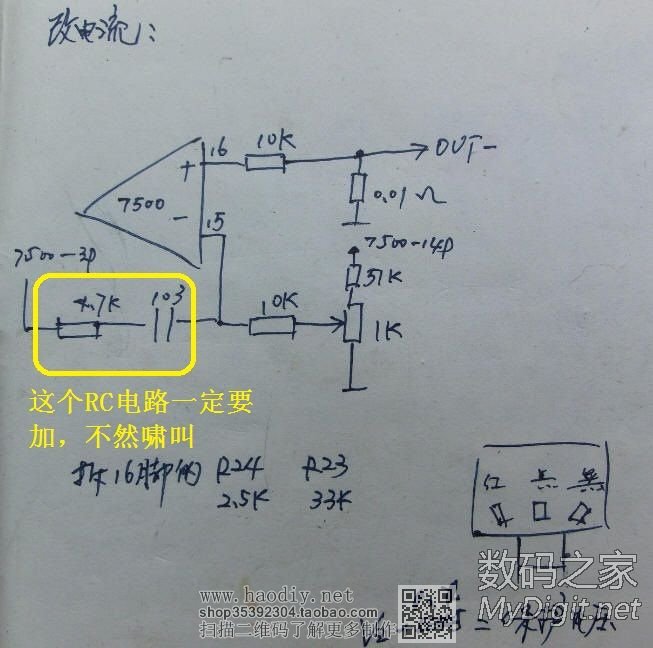 改电流:
16
10K
OUT-
+
7500
-
0.01Ω
15
7500-3P
7500-14P
4.7K
103
51K
10K
1K
这个RC电路一定要
加，不然啸叫
拆16脚的 R24 R23
2.5K 33K
红 黑
数码之家
MyDigit.net
www.haodiy.net
shop35392304.taobao.com
扫描二维码了解更多制作